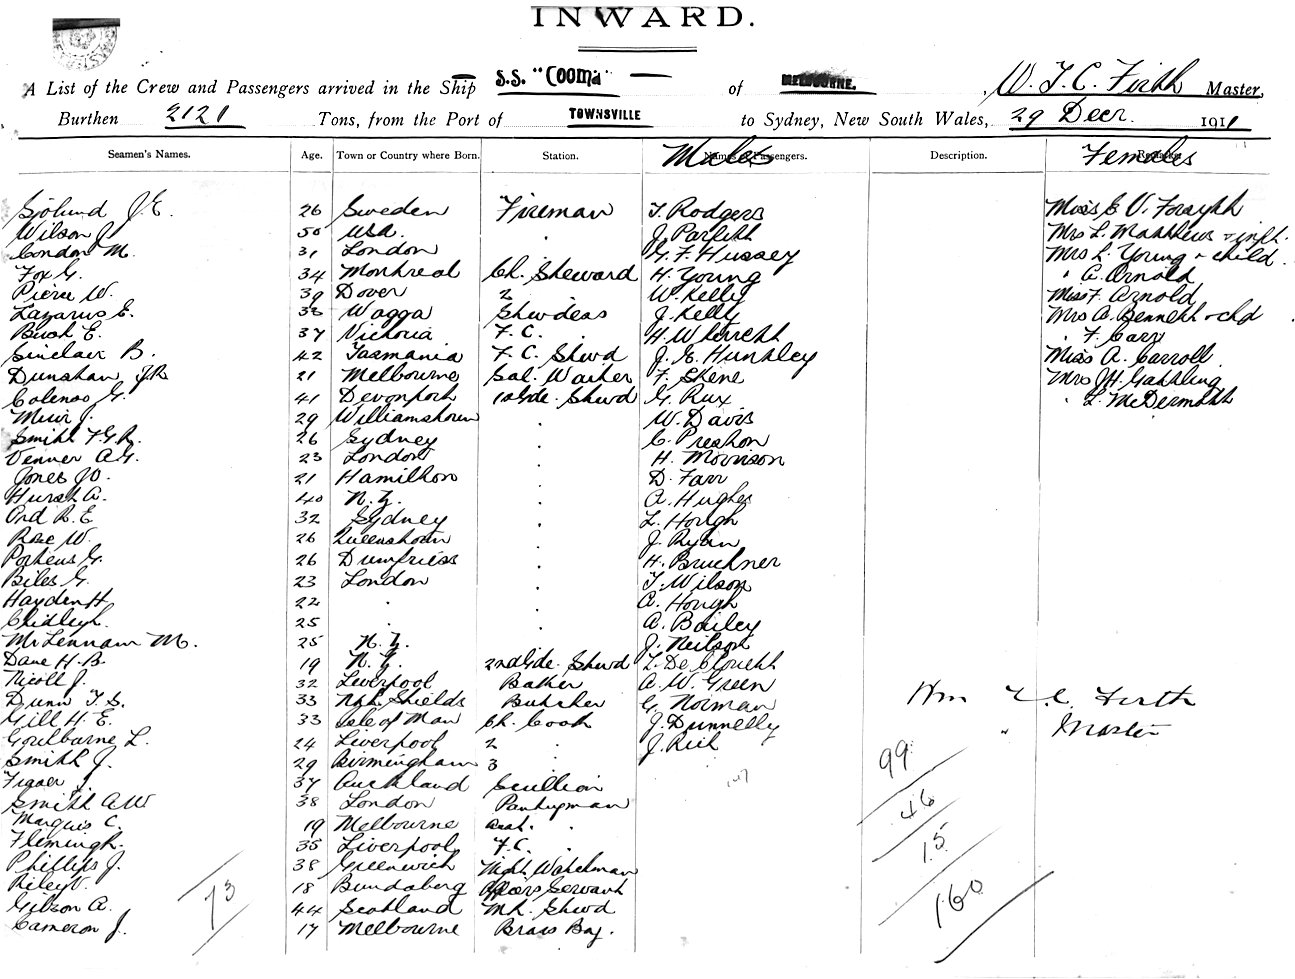 INWARD.
A List of the Crew and Passengers arrived in the Ship S.S. "COOMA" of MELBOURNE. W. T. C. Firth Master,
Burthen 2121 Tons, from the Port of TOWNSVILLE to Sydney, New South Wales, 29 Decr. 1911
Seamen's Names. Age. Town or Country where Born. Station. Names of Passengers. Males Description. Remarks. Females
Sjolund J.E. 26 Sweden Fireman T. Rodgers Miss E V. Forsyth
Wilson J. 50 USA. . J. Parfitt Mrs L. Matthews & inft.
Condon M. 31 London G. F. Hussey Mrs L. Young & child
Fox G. 34 Montreal Ch. Steward H. Young " A. Arnold
Pierce W. 39 Dover 2 . W. Kelly Miss F. Arnold
Lazarus E. 33 Wagga Stwdess J. Kelly Mrs A. Bennett & chd
Bush E. 37 Victoria F. C. . H. W. " F. Carr
Sinclair B. 42 Tasmania F. C. Stwd J. E. Huntley Miss A. Carroll
Dunshan J.R 21 Melbourne Sal. Waiter F. Skene Mrs J.H. Gattling
Colenso G. 41 Devonport Stwd G. Rux " L. McDermott
Muir J. 29 Williamstown . W. Davis
Smith F.G.R. 26 Sydney . C. Preston
Venner A.G. 23 London . H. Morrison
Jones J.O. 21 Hamilton . D. Farr
Hurst A. 40 N.Z. . A. Hughes
Ord R. E 32 Sydney . L. Hough
Rae W. 26 Queenstown . J. Ryan
Porteus G. 26 Dumfriess . H. Bruckner
Biles G. 23 London . T. Wilson
Hayden H 22 . . A. Hough
Chidley . 25 . . A. Bailey
McLennan M. 25 N.Z. . J. Neilson
Dane H. B. 19 N.Z. 2nd Gde. Stwd L. De
Nicoll J. 32 Liverpool Baker A. W. Green
Dunn T. S. 33 Nth Shields Butcher G. Norman Wm T. C. Firth
Gill H. E. 33 Isle of Man Ch. Cook J. Dunnelly " Master
Goulbourne L. 24 Liverpool 2 . J. Rich
Smith J. 29 Birmingham 3 . 99
37 Auckland Scullion
Smith A.W 38 London Pantryman 46
Marquis C. 19 Melbourne Asst. .
Fleming h. 35 Liverpool F.C. . 15
Phillips J. 38 Greenwich Night Watchman
Riley V. 18 Bundaberg Officers Servant
73 160
Gibson A. 44 Scotland Stwd
Cameron J. 17 Melbourne Brass Boy.